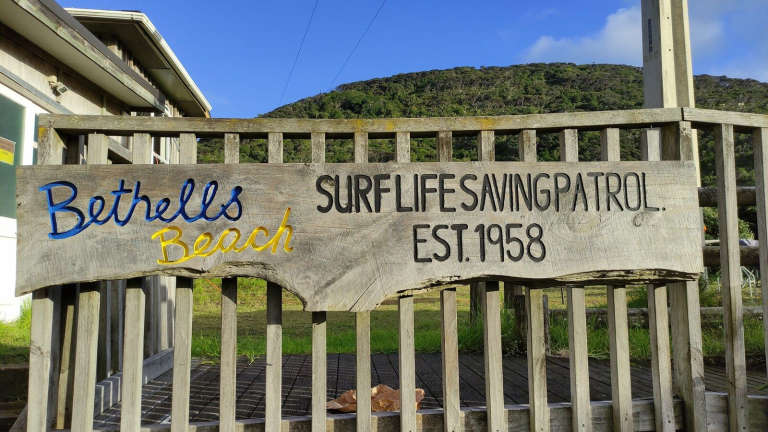 Bethells
Beach
SURF LIFE SAVING PATROL.
EST. 1958